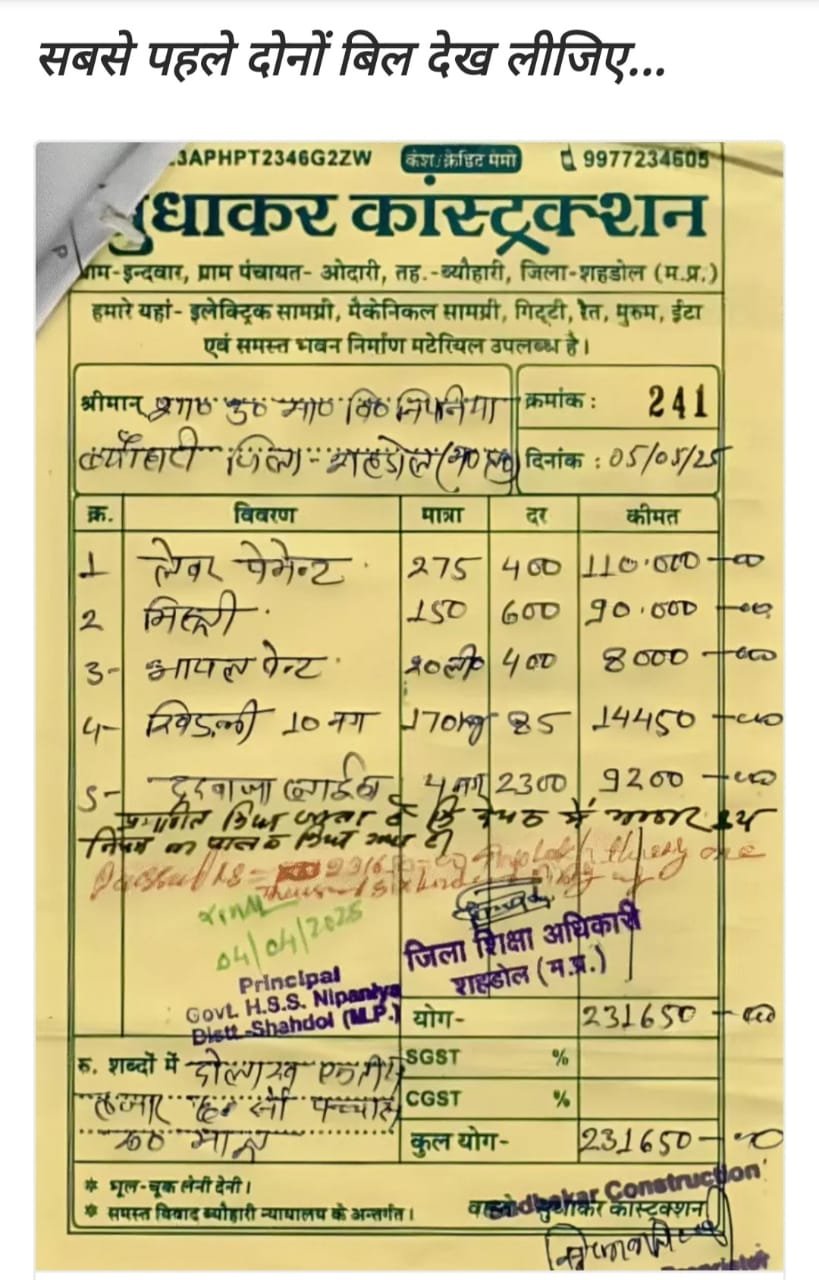 सबसे पहले दोनों बिल देख लीजिए...
3APHPT2346G2ZW कैश/क्रेडिट मेमो 9977234605
सुधाकर कांस्ट्रक्शन
ग्राम-इन्दवार, ग्राम पंचायत- ओदारी, तह.-ब्यौहारी, जिला-शहडोल (म.प्र.)
हमारे यहां- इलेक्ट्रिक सामग्री, मैकेनिकल सामग्री, गिट्टी, रेत, मुरुम, ईटा
एवं समस्त भवन निर्माण मटेरियल उपलब्ध है।
श्रीमान् शा० उ० मा० वि० निपनिया क्रमांक : 241
ब्यौहारी जिला - शहडोल (म० प्र०) दिनांक : 05/05/25
क्र. विवरण मात्रा दर कीमत
1 लेबर पेमेन्ट 275 400 110.000
2 मिस्त्री 150 600 90.000
3- आयल पेन्ट 20ली० 400 8000
4- खिड़की 10 नग 170kg 85 14450
5- दरवाजा 4 नग 2300 9200
प्रमाणित किया जाता है कि में
नियम का पालन किया गया है।
Passed Rs =
04/04/2025
Principal
Govt. H.S.S. Nipaniya
Distt-Shahdol (M.P.)
जिला शिक्षा अधिकारी
शहडोल (म.प्र.)
योग- 231650
रु. शब्दों में दो लाख एकतीस SGST %
हजार छः सौ पच्चास CGST %
रू० मात्र कुल योग- 231650
* भूल-चूक लेनी देनी।
* समस्त विवाद ब्यौहारी न्यायालय के अन्तर्गत।
वास्ते सुधाकर कांस्ट्रक्शन
Sudhakar Construction
Proprietor